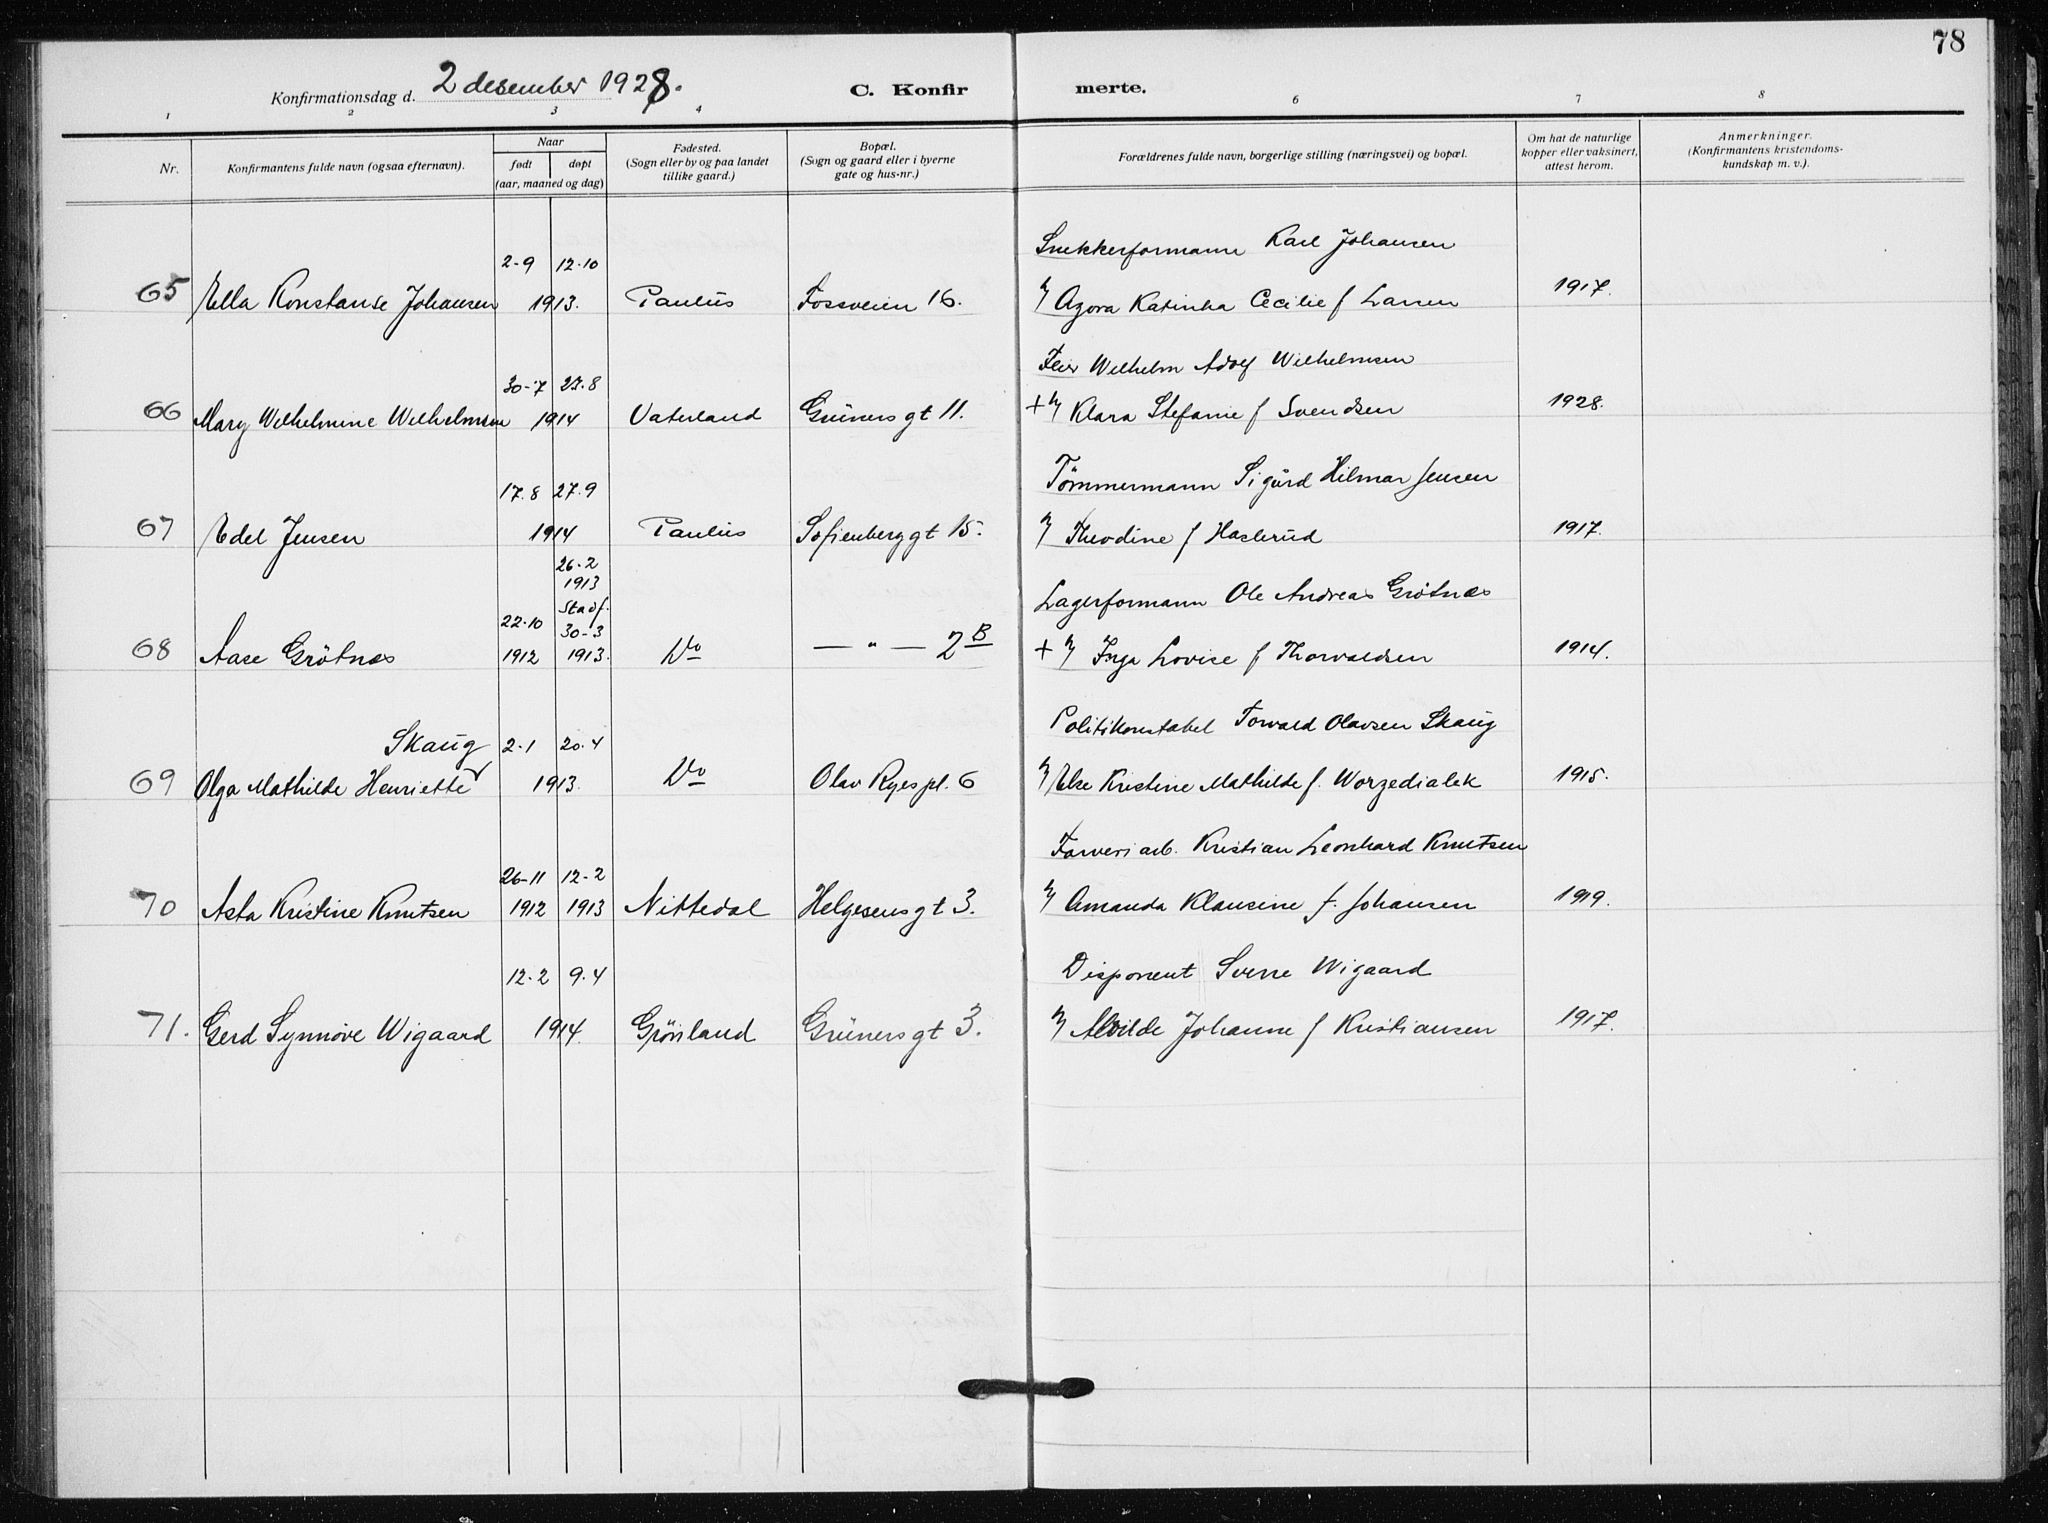 78
Konfirmationsdag d. 2 desember 1928.
C. Konfir merte.
1 2 3 4 6 7 8
Nr.
Konfirmantens fulde navn (ogsaa efternavn).
Naar
født døpt
(aar, maaned og dag)
Fødested.
(Sogn eller by og paa landet
tillike gaard.)
Bopæl.
(Sogn og gaard eller i byerne
gate og hus-nr.)
Forældrenes fulde navn, borgerlige stilling (næringsvei) og bopæl.
Om hat de naturlige
kopper eller vaksinert,
attest herom.
Anmerkninger.
(Konfirmantens kristendoms-
kundskap m. v.).
2-9 12-10 Snekkerformann Karl Johansen
65 Ella Konstanse Johansen 1913. Paulus Fossveien 16. Agora Katinka Cecilie f Larsen 1917.
30-7 27.8 Feier Wilhelm Adolf Wilhelmsen
66 Mary Wilhelmine Wilhelmsen 1914 Vaterland Grüners gt 11. + Klara Stefanie f Svendsen 1928.
17.8 27.9 Tömmermann Sigurd Hilmar Jensen
67 Edel Jensen 1914 Paulus Sofienberggt 15. Theodine f Haslerud 1917.
26-2
1913
Stadf.
22-10 30-3 Lagerformann Ole Andreas Grötnæs
68 Aase Grötnæs 1912 1913. Do — " — 2B + Inga Lovise f Thorvaldsen 1914.
Skaug 2-1 20.4 Politikonstabel Torvald Olavsen Skaug
69 Olga Mathilde Henriette 1913. Do Olav Ryes pl. 6 Else Kristine Mathilde f. Worzedialek 1915.
26-11 12-2 Farveriarb. Kristian Leonhard Knutsen
70 Asta Kristine Knutsen 1912 1913 Nittedal Helgesens gt 3. Amanda Klausine f. Johansen 1919.
12-2 9.4 Disponent Sverre Wigaard
71. Gerd Synnöve Wigaard 1914. Grönland Grüners gt 3. Alvilde Johanne f Kristiansen 1917.